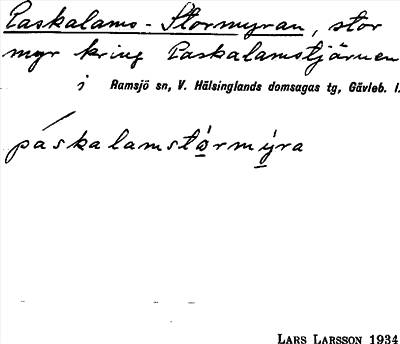 Paskalams-Stormyran, stor
myr kring Paskalamstjärnen
i Ramsjö sn, V. Hälsinglands domsagas tg, Gävleb. l.
páskalamstọ́rmý̱ra
LARS LARSSON 1934